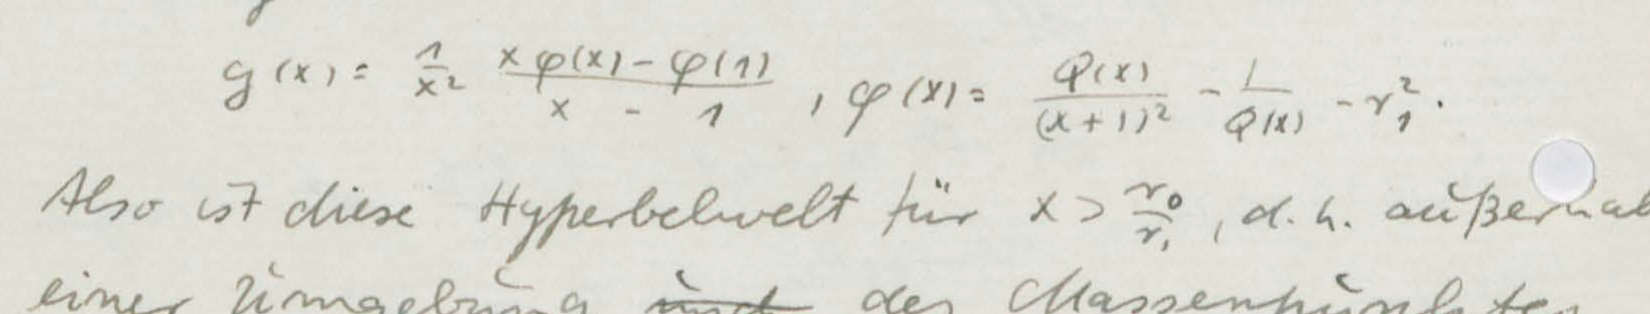 g(x) = 1/x² (xφ(x) - φ(1))/(x - 1), φ(x) = Q(x)/(x+1)² - 1/Q(x) - r₁².
Also ist diese Hyperbelwelt für x > r₀/r₁, d.h. außerhalb
einer Umgebung des Massenpunktes